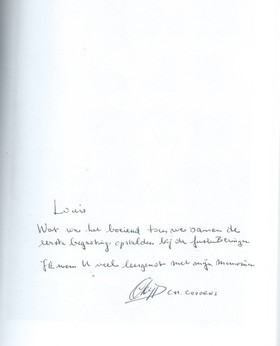 Louis
Wat was het boeiend toen we samen de
eerste begroting opstelden bij de fusie Beringen
Ik wens U veel leesgenot met mijn memoires
C.H. COOREVITS